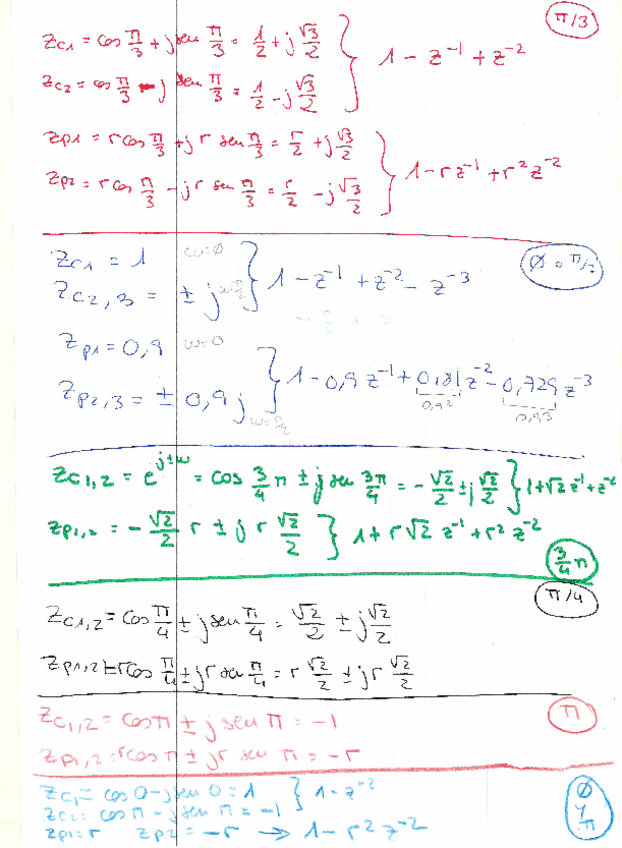 π/3
zc1 = cos π/3 + j sen π/3 = 1/2 + j √3/2 } 1 - z^-1 + z^-2
zc2 = cos π/3 - j sen π/3 = 1/2 - j √3/2
zp1 = r cos π/3 + j r sen π/3 = r/2 + j √3/2 } 1 - r z^-1 + r² z^-2
zp2 = r cos π/3 - j r sen π/3 = r/2 - j √3/2
Ø o π/2
zc1 = 1 w=Ø } 1 - z^-1 + z^-2 - z^-3
zc2,3 = ± j
zp1 = 0,9 w=0
} 1 - 0,9 z^-1 + 0,81 z^-2 - 0,729 z^-3
zp2,3 = ± 0,9 j 0,9² 0,9³
zc1,2 = e^j±w = cos 3/4 π ± j sen 3π/4 = - √2/2 ± j √2/2 } 1 + √2 z^-1 + z^-2
zp1,2 = - √2/2 r ± j r √2/2 } 1 + r √2 z^-1 + r² z^-2
3/4 π
π/4
zc1,2 = cos π/4 ± j sen π/4 = √2/2 ± j √2/2
zp1,2 = r cos π/4 ± j r sen π/4 = r √2/2 ± j r √2/2
π
zc1,2 = cos π ± j sen π = -1
zp1,2 = r cos π ± j r sen π = - r
Ø y π
zc1 = cos 0 - j sen 0 = 1 } 1 - z^-2
zc2 = cos π - j sen π = -1
zp1 = r zp2 = - r → 1 - r² z^-2